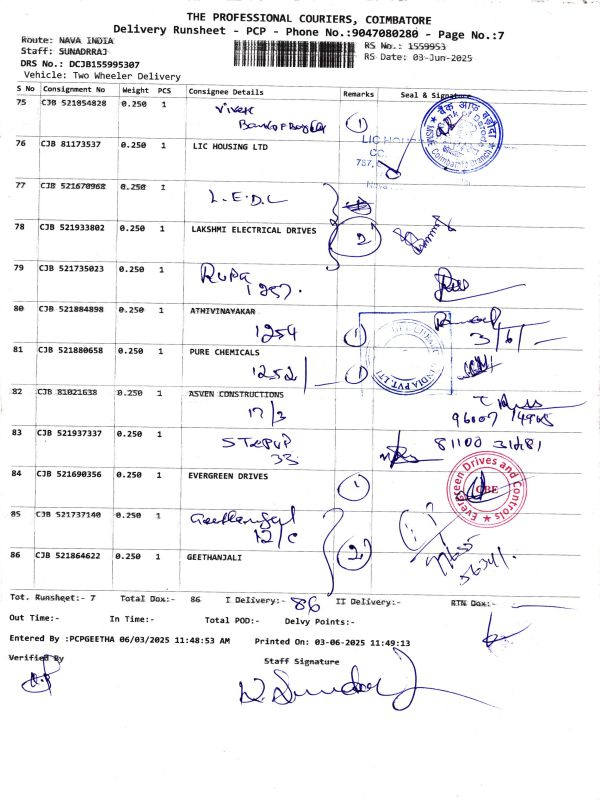 THE PROFESSIONAL COURIERS, COIMBATORE
Delivery Runsheet - PCP - Phone No.:9047080280 - Page No.:7
Route: NAVA INDIA
RS No.: 1559953
Staff: SUNADRRAJ
RS Date: 03-Jun-2025
DRS No.: DCJB155995307
Vehicle: Two Wheeler Delivery
S No Consignment No Weight PCS Consignee Details Remarks Seal & Signature
75 CJB 521854828 0.250 1 Vivek
Bank of Baroda 1
76 CJB 81173537 0.250 1 LIC HOUSING LTD
77 CJB 521670968 0.250 1 L.E.D.L
78 CJB 521933802 0.250 1 LAKSHMI ELECTRICAL DRIVES 2
79 CJB 521735023 0.250 1 Rupa
1257.
80 CJB 521884898 0.250 1 ATHIVINAYAKAR
1254 1 3/6/
81 CJB 521880658 0.250 1 PURE CHEMICALS
1252 1
INDIA PVT. LTD
82 CJB 81021638 0.250 1 ASVEN CONSTRUCTIONS
17/3
83 CJB 521937337 0.250 1
33 81100 31281
84 CJB 521690356 0.250 1 EVERGREEN DRIVES 1
Evergreen Drives and Controls
CBE
85 CJB 521737140 0.250 1 Geethanjali
12/C
86 CJB 521864622 0.250 1 GEETHANJALI 2
Tot. Runsheet:- 7 Total Dox:- 86 I Delivery:- 86 II Delivery:- RTN Dox:-
Out Time:- In Time:- Total POD:- Delvy Points:-
Entered By :PCPGEETHA 06/03/2025 11:48:53 AM Printed On: 03-06-2025 11:49:13
Verified By Staff Signature